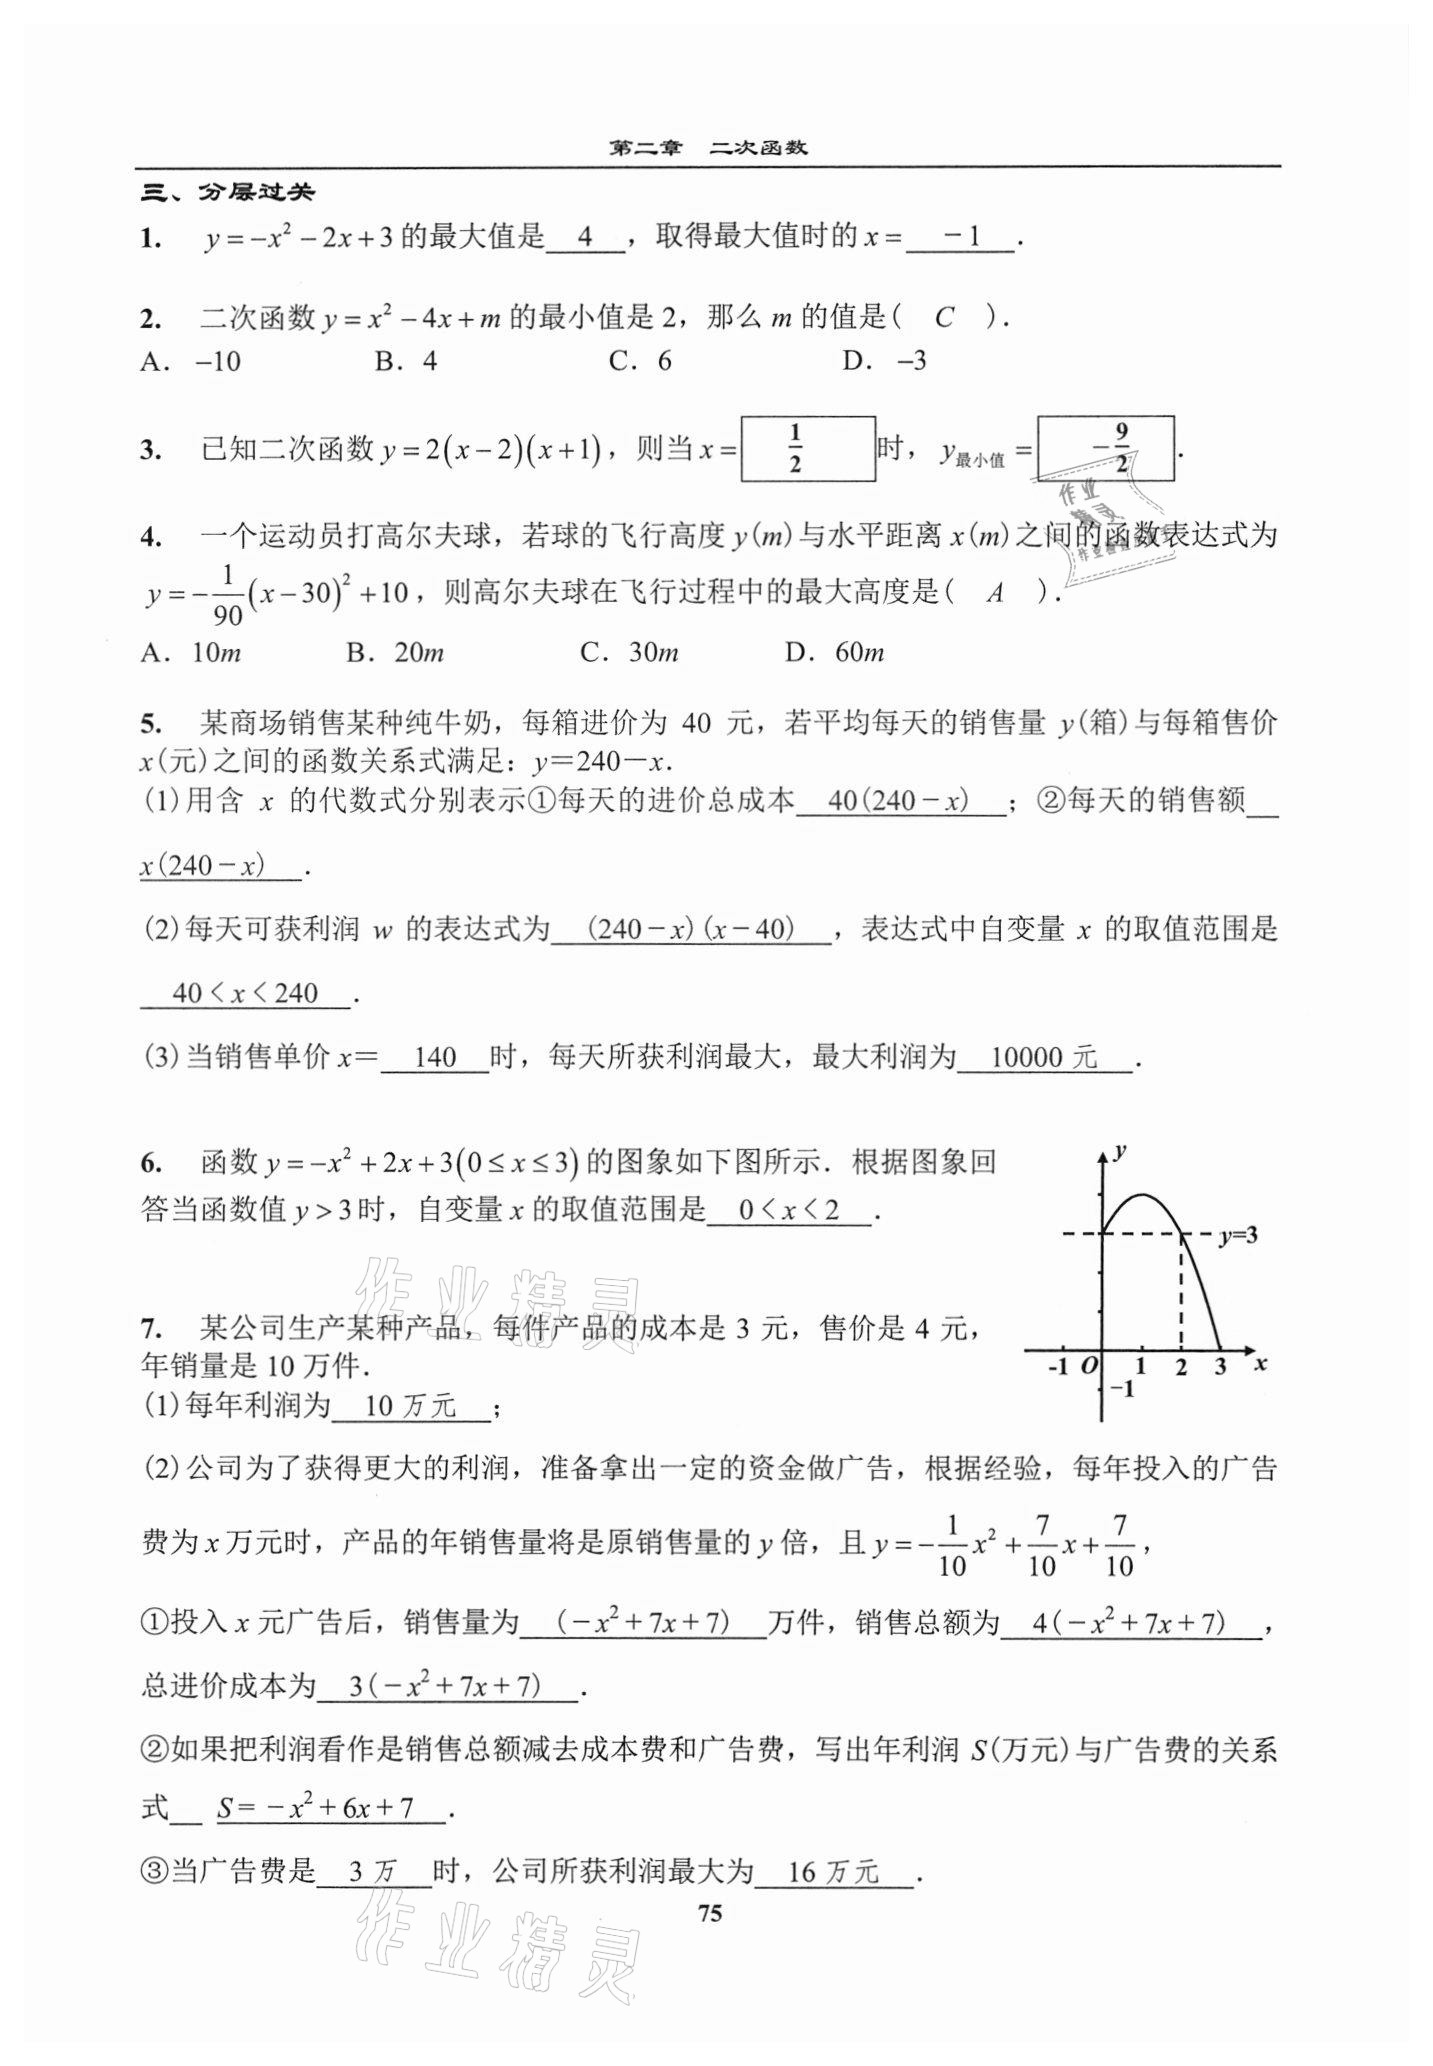 第二章　二次函数
三、分层过关
1.　y=-x²-2x+3的最大值是　4　，取得最大值时的x=　-1　．
2.　二次函数y=x²-4x+m的最小值是2，那么m的值是(　C　)．
A．-10　B．4　C．6　D．-3
3.　已知二次函数y=2(x-2)(x+1)，则当x= 1/2 时，y最小值= -9/2 ．
4.　一个运动员打高尔夫球，若球的飞行高度y(m)与水平距离x(m)之间的函数表达式为
y=-1/90(x-30)²+10，则高尔夫球在飞行过程中的最大高度是(　A　)．
A．10m　B．20m　C．30m　D．60m
5.　某商场销售某种纯牛奶，每箱进价为 40 元，若平均每天的销售量 y(箱)与每箱售价
x(元)之间的函数关系式满足：y=240-x．
(1)用含 x 的代数式分别表示①每天的进价总成本　40(240-x)　；②每天的销售额
x(240-x)　．
(2)每天可获利润 w 的表达式为　(240-x)(x-40)　，表达式中自变量 x 的取值范围是
40<x<240　．
(3)当销售单价x=　140　时，每天所获利润最大，最大利润为　10000元　．
6.　函数y=-x²+2x+3(0≤x≤3)的图象如下图所示．根据图象回
答当函数值y>3时，自变量x的取值范围是　0<x<2　．
y
y=3
-1 O 1 2 3 x
-1
7.　某公司生产某种产品，每件产品的成本是 3 元，售价是 4 元，
年销量是10万件．
(1)每年利润为　10万元　；
(2)公司为了获得更大的利润，准备拿出一定的资金做广告，根据经验，每年投入的广告
费为x万元时，产品的年销售量将是原销售量的y倍，且y=-1/10x²+7/10x+7/10，
①投入x元广告后，销售量为　(-x²+7x+7)　万件，销售总额为　4(-x²+7x+7)　，
总进价成本为　3(-x²+7x+7)　．
②如果把利润看作是销售总额减去成本费和广告费，写出年利润 S(万元)与广告费的关系
式　S=-x²+6x+7　．
③当广告费是　3万　时，公司所获利润最大为　16万元　．
75
作业精灵
作业精灵
作业
精灵